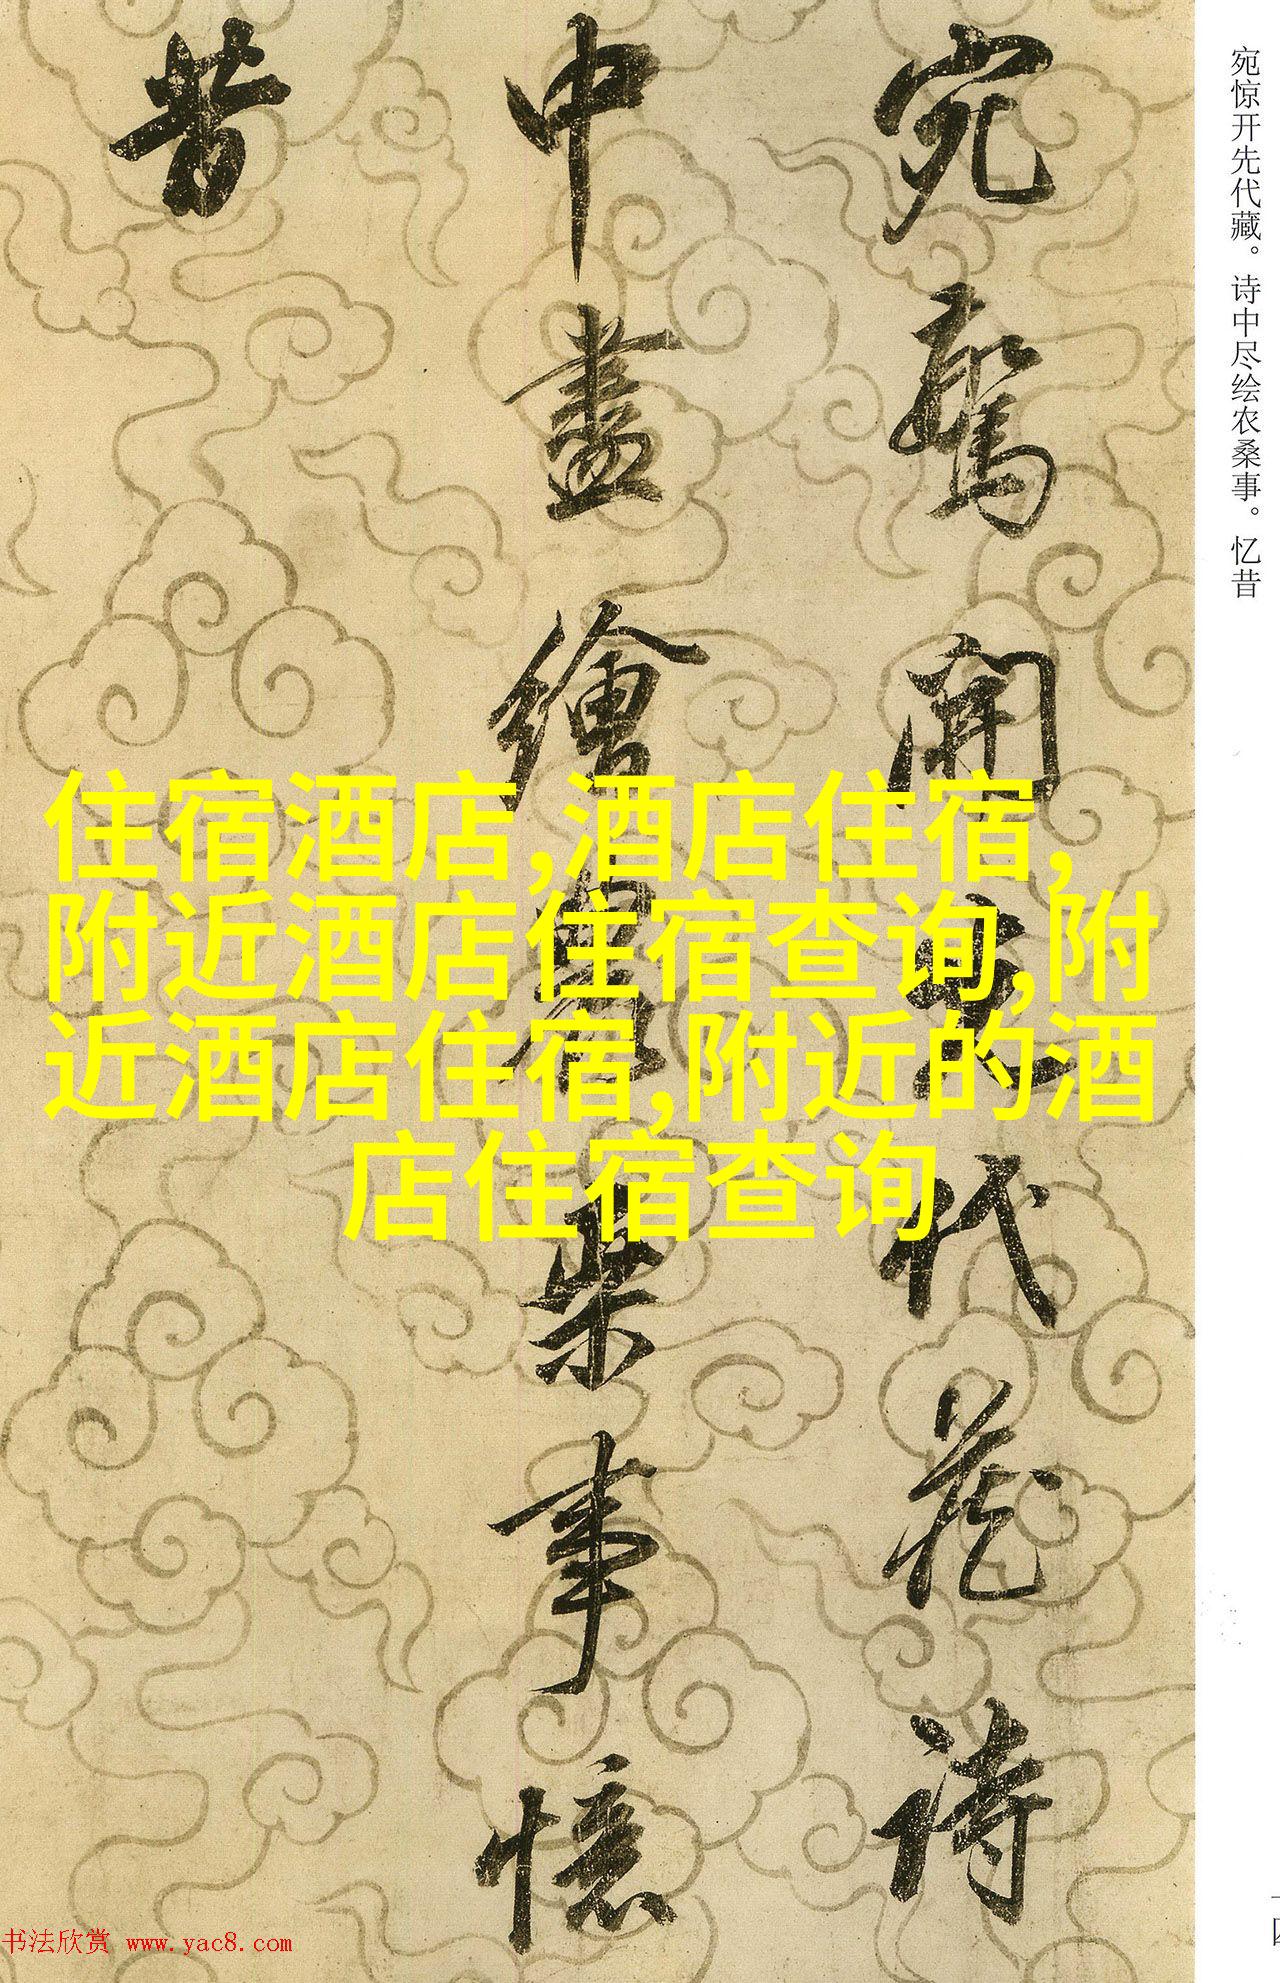 宛惊开先代藏。诗中尽绘农桑事。忆昔
宛驚開先代藏詩
中盡繪農桒事憶
昔
住宿酒店,酒店住宿,
附近酒店住宿查询,附
近酒店住宿,附近的酒
店住宿查询
书法欣赏 www.yac8.com